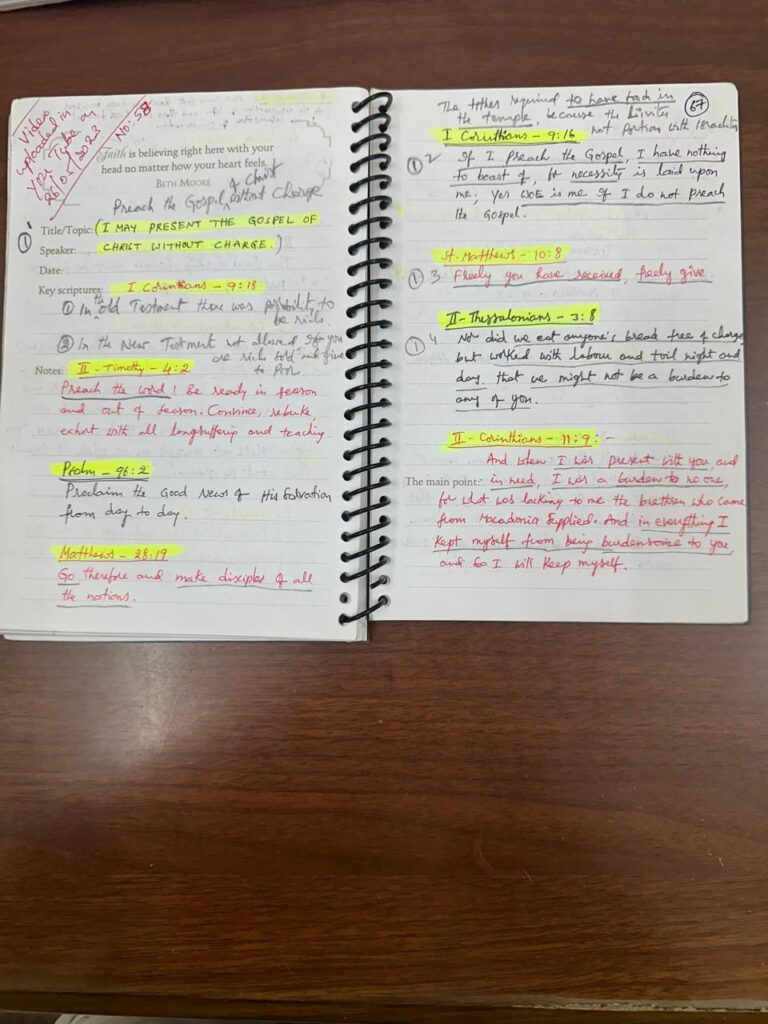 Video
uploaded in
You Tube on
26/05/2023
No: 58
Faith is believing right here with your
head no matter how your heart feels.
BETH MOORE
of Christ
Preach the Gospel without Charge
① Title/Topic: (I MAY PRESENT THE GOSPEL OF
Speaker: CHRIST WITHOUT CHARGE.)
Date:
Key scriptures: I Corinthians - 9:18
① In the old Testment there was posibility to
be rich.
② In the New Testment not allowed If you
are rich sold and give
to Poor.
Notes: II - Timothy - 4:2
Preach the word! Be ready in season
and out of season. Convince, rebuke
exhort with all longsuffering and teaching.
Psalm - 96:2
Proclaim the Good News of His Salvation
from day to day.
Matthews - 28:19
Go therefore and make disciples of all
the nations.
67
The tithes required to have food in
the temple, because the
I Corinthians - 9:16 not portion with
① 2 If I preach the Gospel, I have nothing
to boast of, for necessity is laid upon
me; yes woe is me if I do not preach
the Gospel.
St. Matthews - 10:8
① 3 Freely you have received, freely give.
II - Thessalonians - 3:8
① 4 Nor did we eat anyone's bread free of charge
but worked with labour and toil night and
day. that we might not be a burden to
any of you.
II - Corinthians - 11:9: -
And when I was present with you and
The main point: in need, I was a burden to no one,
for what was lacking to me the brethren who came
from Macadonia supplied. And in everything I
kept myself from being burdensome to you,
and so I will keep myself.